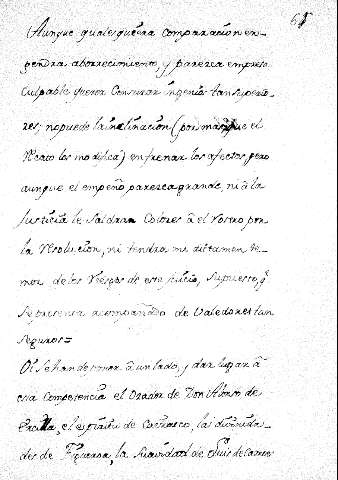 61
Aunque qualesquiera comparacion en-
gendra aborrecimiento, y parezca empresa
Culpable querer Censurar ingenios tan superio-
res; no puede la inclinacion (por mas que el
Recato los modifica) enfrenar los afectos, pero
aunque el empeño parezca grande, ni â la
Justicia le saldran Colores â el rostro por
la Resolucion, ni tendra mi dictamen te-
mor de los riesgos de este juicio, supuesto, q̃
se presenta acompañado de Valedores tan
seguros=
se han de poner â un lado, y dar lugar â
esta Competencia el Orador de Don Alonso de
Ercilla, el espiritu de Carrasco, las divinida-
des de Figueroa, la Suavidad de Luis de Camoes